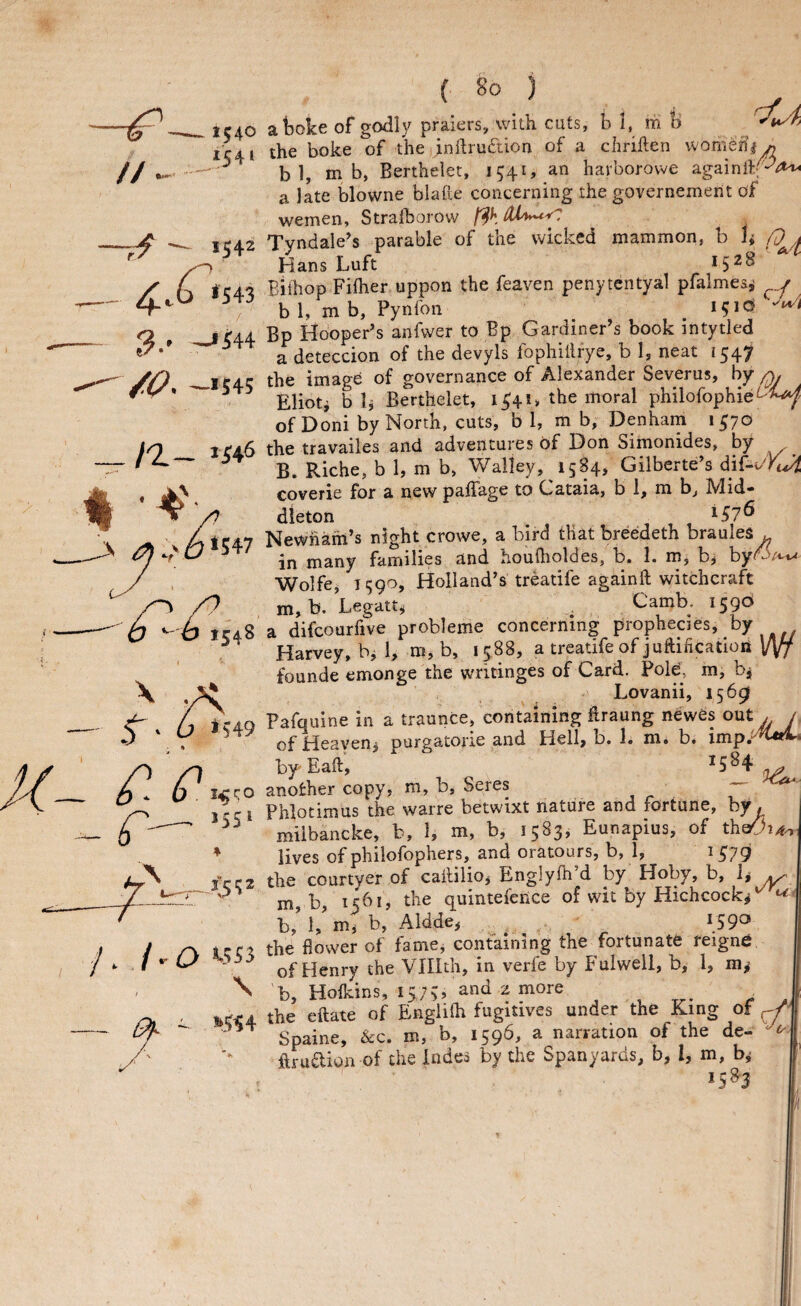 ( 80 )
1540 a boke of godly praiers, with cuts, b l, m b
1541 the boke of the inſtruction of a chriſten women,
b l, m b, Berthelet, 1541, an harborowe againſt
a late blowne blaſte concerning the governement of
wemen, Straſborow
1542 Tyndale's parable of the wicked mammon, b l,
Hans Luft 1528
4.6 1543 Biſhop Fiſher uppon the ſeaven penytentyal pſalmes,
b l, m b, Pynſon 1510
3. 1544 Bp Hooper's anſwer to Bp Gardiner's book intytled
a deteccion of the devyls ſophiſtrye, b l, neat 1547
10. 1545 the image of governance of Alexander Severus, by
Eliot, b l, Berthelet, 1541, the moral philoſophie
of Doni by North, cuts, b l, m b, Denham 1570
12 1546 the travailes and adventures of Don Simonides, by
B. Riche, b l, m b, Walley, 1584, Gilberte's diſ-
coverie for a new paſſage to Cataia, b l, m b, Mid-
dleton 1576
1547 Newnam's night crowe, a bird that breedeth braules
in many families and houſholdes, b. l. m, b, by
Wolfe, 1590, Holland's treatiſe againſt witchcraft
m, b. Legatt, Camb. 1590
6 6 1548 a diſcourſive probleme concerning prophecies, by
Harvey, b, l, m, b, 1588, a treatiſe of juſtification
founde emonge the writinges of Card. Pole, m, b,
Lovanii, 1569
5. 6 1549 Paſquine in a traunce, containing ſtraung newes out
of Heaven, purgatorie and Hell, b. l. m. b. imp.
by Eaſt, 1584
6. 6 1550 another copy, m, b, Seres —
6 1551 Phlotimus the warre betwixt nature and fortune, by
milbancke, b, l, m, b, 1583, Eunapius, of the
lives of philoſophers, and oratours, b, l, 1579
1552 the courtyer of caſtilio, Englyſh'd by Hoby, b, l,
m, b, 1561, the quinteſence of wit by Hichcock,
b, l, m, b, Aldde, 1590
1. 1. 0 1553 the flower of fame, containing the fortunate reigne
of Henry the VIIIth, in verſe by Fulwell, b, l, m,
b, Hoſkins, 1575, and 2 more
1554 the eſtate of Engliſh fugitives under the King of
Spaine, &c. m, b, 1596, a narration of the de-
ſtruction of the Indes by the Spanyards, b, l, m, b,
1583